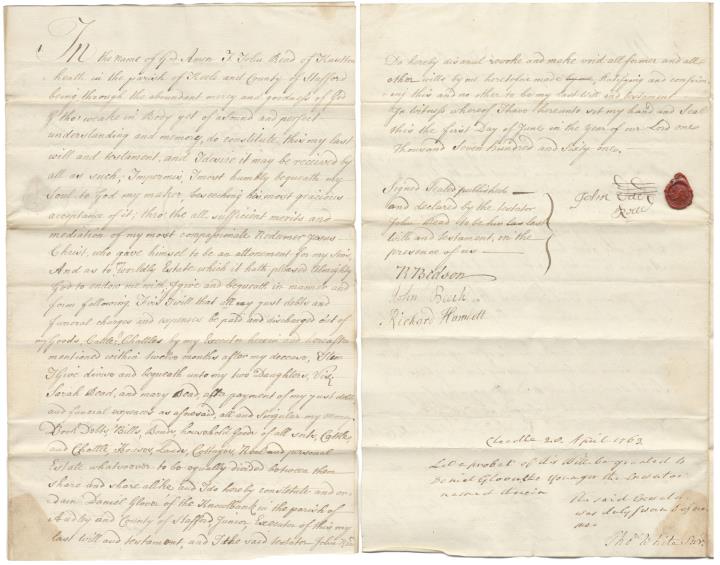 In the name of God Amen I John Bead of
heath in the parish of Keele and County of Stafford
being through the abundant mercy and goodness of God
tho' weake in Body yet of a sound and perfect
understanding and memory, do constitute this my last
will and testament, and I desire it may be received by
all as such, Imprimis, I most humbly bequeath my
Soul to God my maker, beseeching his most gracious
acceptance of it; thro' the all sufficient merits and
mediation of my most compassionate Redemer Jesus
Christ, who gave himself to be an attonement for my Sins,
And as to worldly Estate which it hath pleased Almighty
God to endow me with, I give and bequeath in manner and
form following. First I will that all my just debts and
funeral charges and expences be paid and discharged out of
my Goods, Cattle, Chattles by my Executor herein and hereafter
mentioned within twelve months after my decease, Item
I Give devise and bequeath unto my two Daughters, Viz.
Sarah Bead, and mary Bead, after payment of my just debts
and funeral expences as aforesaid, all and Singular my money
Book Debts, Bills, Bonds, household Goods of all sorts, Cattle,
and Chattle, Houses, Lands, Cottages, Real and personal
Estate whatsoever to be equally divided between them
share and share alike and I do hereby constitute and or-
dain Daniel Glover of the Knowlbank in the parish of
Audley and County of Stafford Junior, Executor of this my
last will and testament, and I the said testator John
Do hereby disannul revoke and make void all former and all
other wills by me heretofore made Ratifying and confirm-
ing this and no other to be my last will and testament
In witness whereof I have hereunto set my hand and Seal
this the first Day of June in the Year of our Lord one
Thousand Seven Hundred and Sixty one.
Signed Sealed published
and declared by the testator
John Bead to be his last
will and testament, in the
presence of us
John
Bedson
John
Richard
Cheadle 28. April 1763
Let a probat of this Will be granted to
Daniel Glover the Younger the Executor
named therein
The said Executor
was duly sworn before
me
Tho. White Surr.